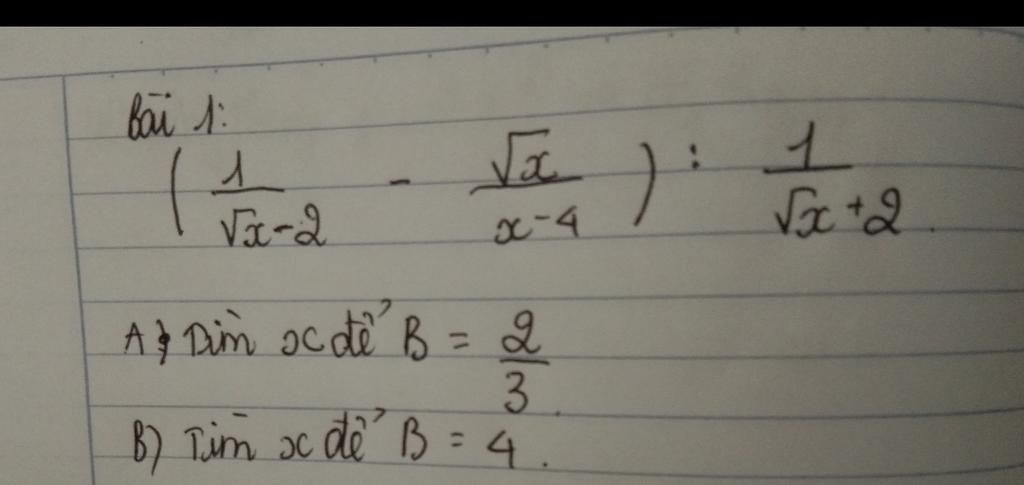 Bài 1:
( 1/(√x-2) - √x/(x-4) ) : 1/(√x+2).
A) Tìm x để B = 2/3.
B) Tìm x để B = 4.